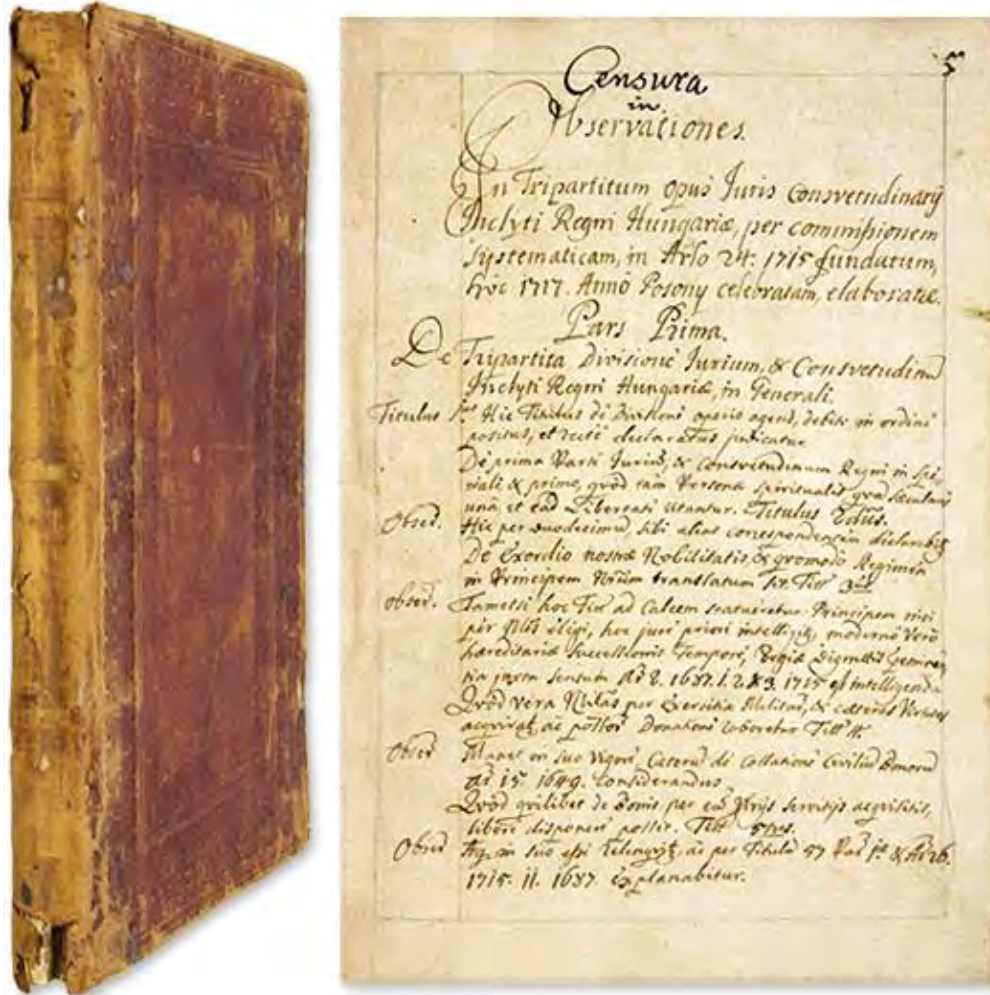 5
Censura
in
Observationes.
In Tripartitum opus Juris Consvetudinarij
Inclyti Regni Hungariæ, per commissionem
systematicam, in Arlo 24. 1715 fundatum,
hoc 1717. Anno Posony celebratam, elaboratæ.
Pars Prima.
De Tripartita Divisione Jurium, & Consvetudinu
Inclyti Regni Hungariæ, in Generali.
Titulus 1us Hic Titulus de Divisione operis agens, debite in ordine
positus, et recte declaratus judicatur
De prima Parte Jurium, & Consvetudinum Regni in spe-
ciali & primo, qvod tam Personæ spirituales qva sæculares
una et ead Libertate utantur. Titulus 2dus.
Obser. Hic per duodecimum, sibi alias correspondentem declarabit
De Exordio nostræ Nobilitatis, & qvomodo Regimen
in Principem translatum sit. Titt 3us
obser. Tametsi hoc Titt ad Calcem statueretur Principem nisi
per eligi, hoc jure priori intelligit, moderno vero
hæreditariæ Successionis Tempore, Regiæ
juxta sensum Ar 2. 1687. 1. 2 & 3. 1715 intelligenda
Qvod vera per Exercitia Militar, & cæteras Virtutes
acqvirat, ac Donatione Titt 4.
Obser Manet in suo Vigore, Cæterum de Collatione Civilium Bonorum
Ar 15. 1649. Considerandus
Qvod qvilibet de Bonis per servitijs acqvisitis,
libere disponere possit. Titt 5tus.
Obser in suo esse relinqvit, ac per Titulu 57 Par 1æ & Ar 26.
1715. 11. 1687. explanabitur.